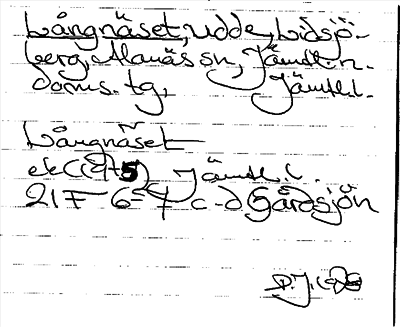 Långnäset, udde, Lidsjö-
berg, Alanäs sn, Jämtl. n.
doms. tg, Jämtl. l.
Långnäset
ek (45) Jämtl. l.
21F 6-7 c-d Gårdsjön